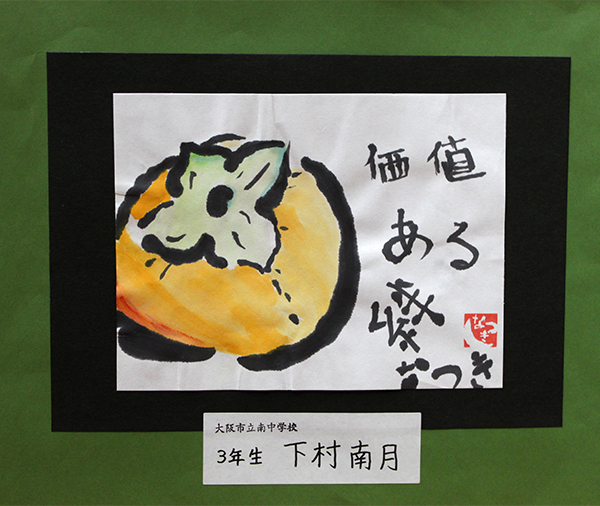 価値
ある
なつき
なつき
大阪市立南中学校
3年生 下村南月